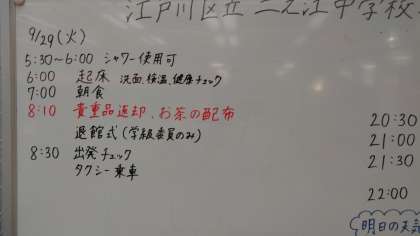 江戸川区立二之江中学校
9/29(火)
5:30~6:00 シャワー使用可
6:00 起床 洗面、検温、健康チェック
7:00 朝食
8:10 貴重品返却、お茶の配布
退館式(学級委員のみ)
8:30 出発チェック
タクシー乗車
20:30
21:00
21:30
22:00
明日の天気